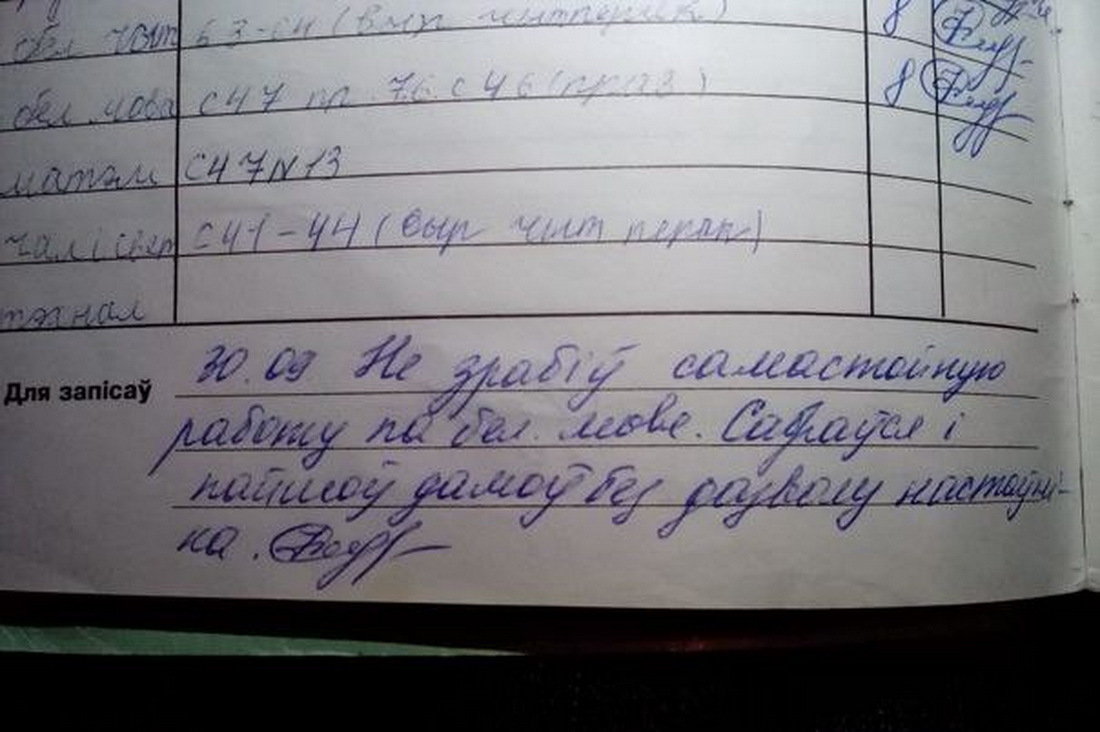 бел чыт с 3-С4 (выр чыт перак) 8
бел мова С 47 пр. 76 С 46 (прав) 8
матэм С 47 N 13
чал і свет С 41-44 (выр чыт перак)
тэхнал
Для запісаў 30.09 Не зрабіў самастойную
работу па бел. мове. Сабраўся і
пайшоў дамоў без дазволу настаўні-
ка.